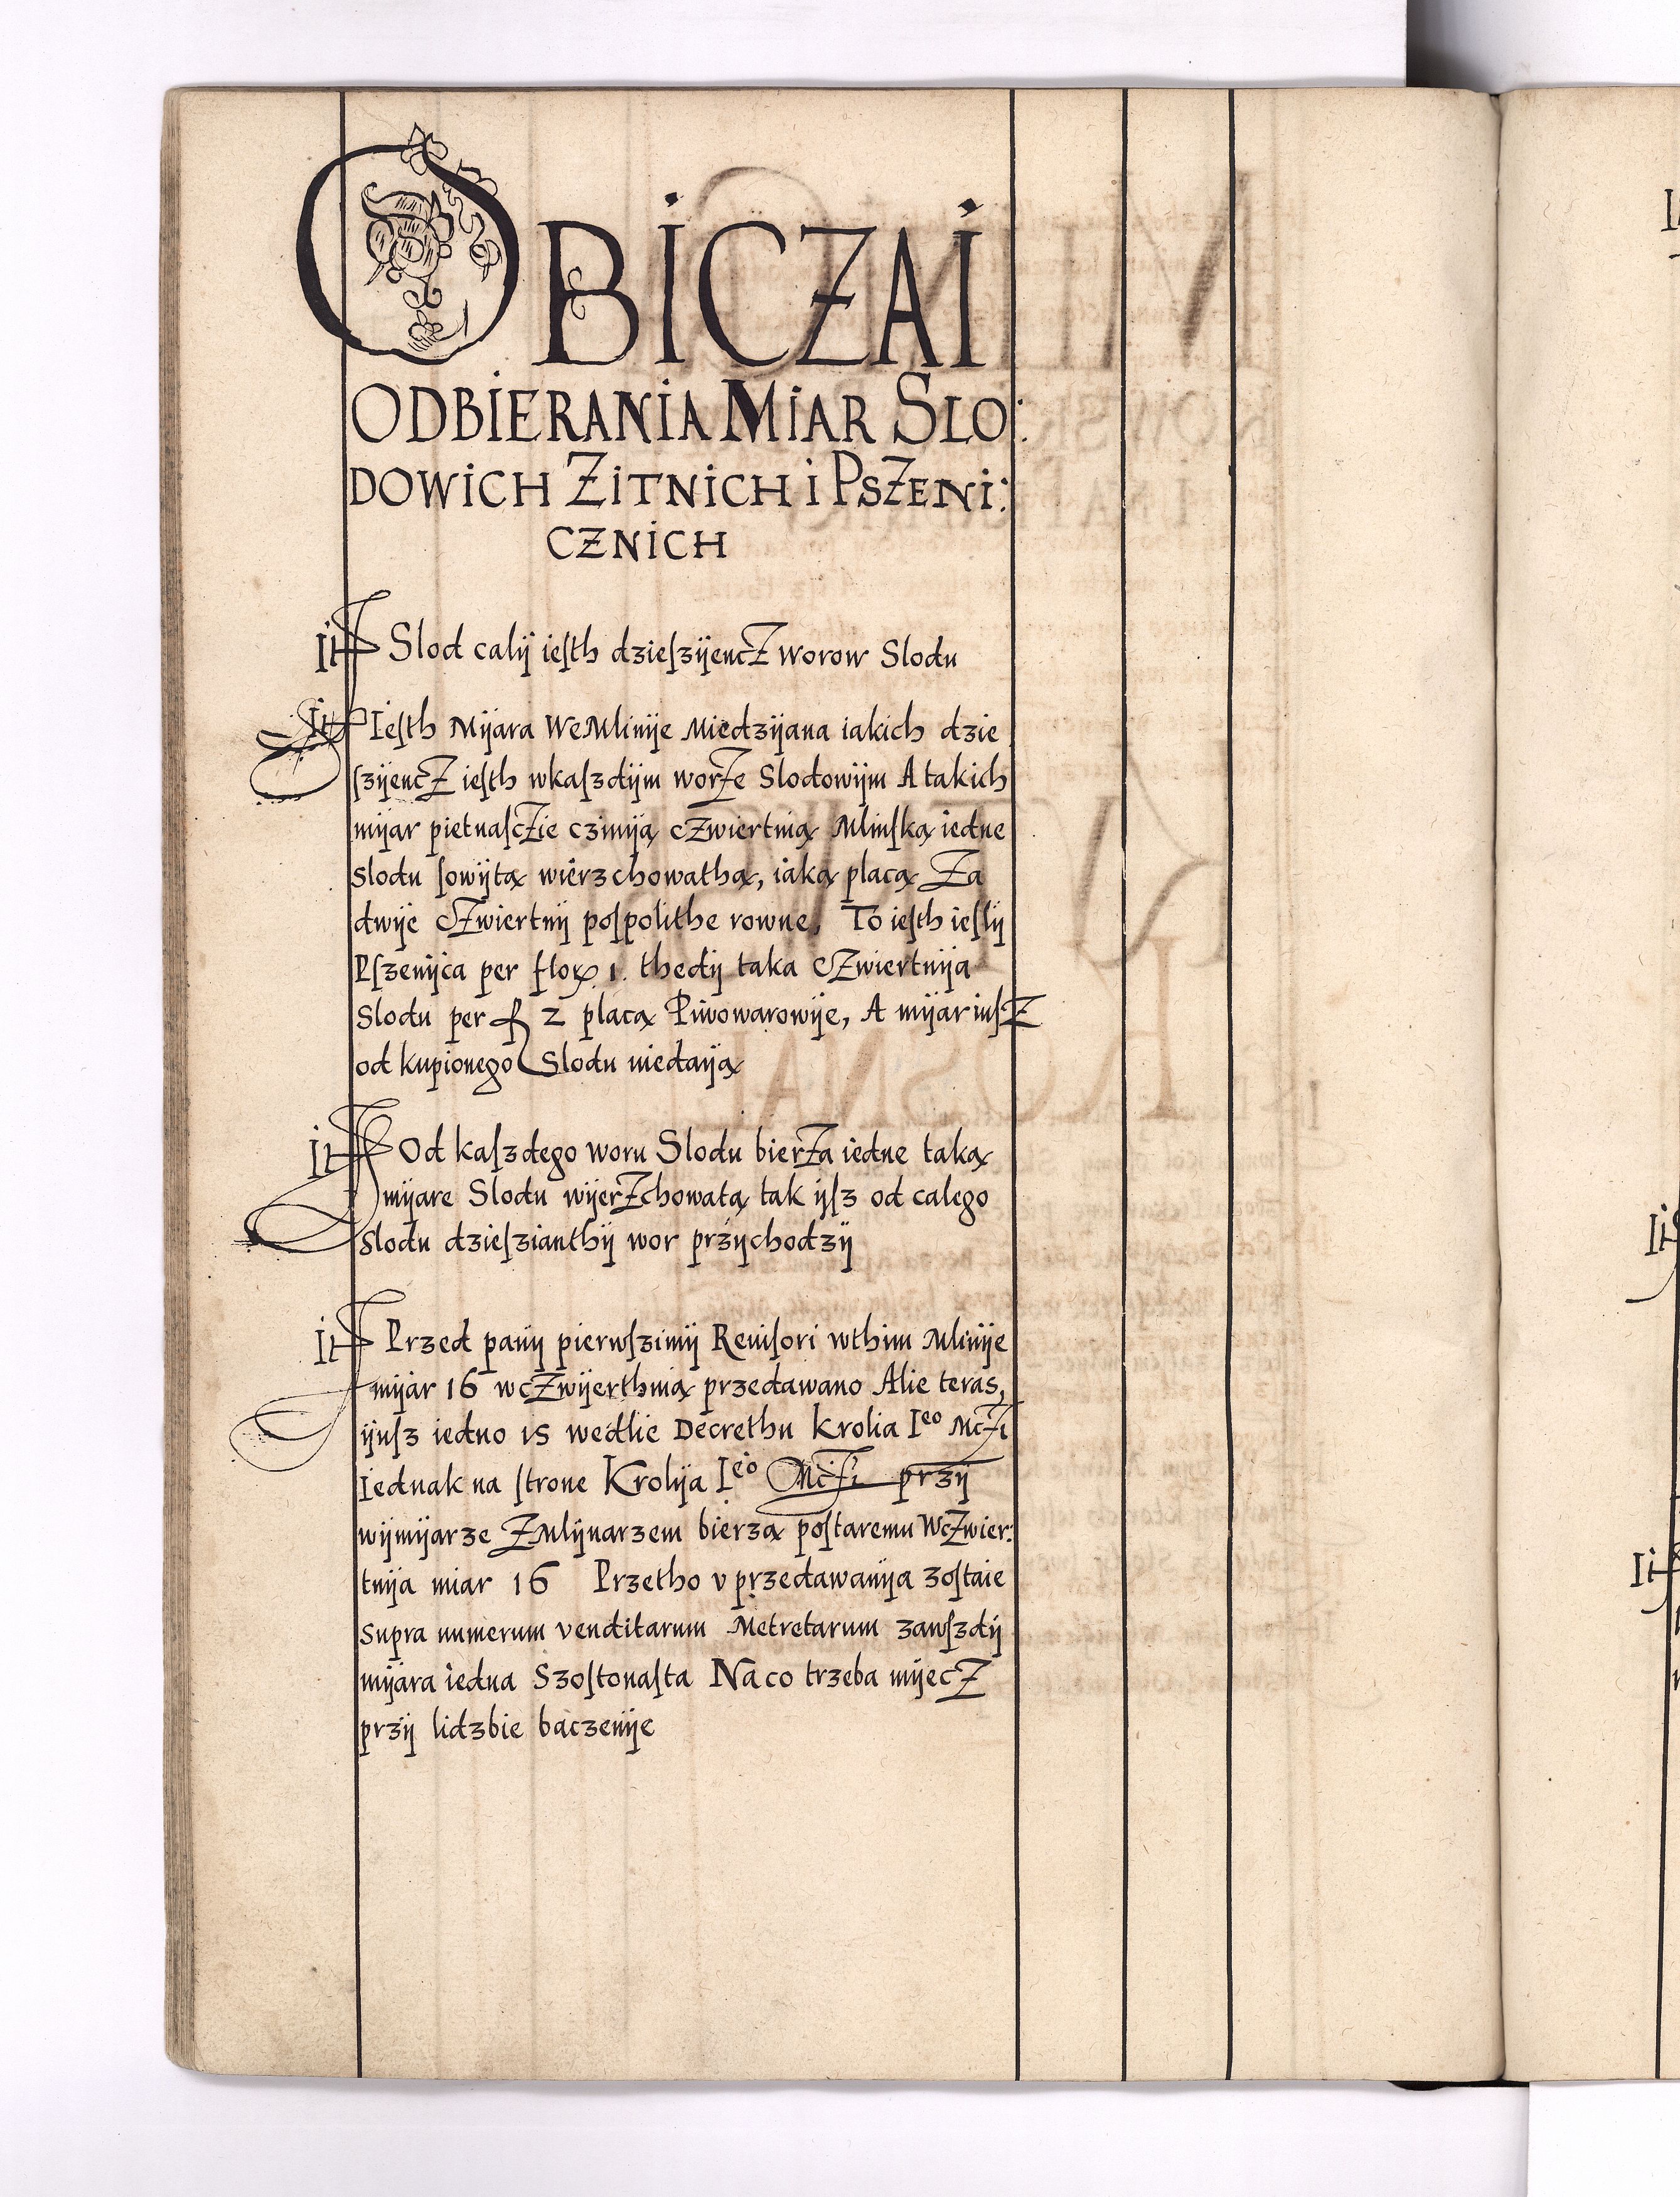 OBICZAI
ODBIERANIA MIAR SLO:
DOWICH ZITNICH I PSZENI:
CZNICH
It Slod calÿ ieſth dzieſzÿencZ worow Slodu
It Ieſth Mÿara WeMlinÿe Miedzÿana iakich dzie
ſzÿencZ ieſth wkaſzdÿm worZe Slodowÿm A takich
mÿar pietnaſcZie czinÿą cZwiertnią Mlinſką iedne
Slodu ſowÿtą wierzchowathą, iaką placą Za
dwÿe cZwiertnÿ poſpolithe rowne, To ieſth ieſlÿ
Pſzenÿca per flor. 1. thedÿ taka cZwiertnÿa
Slodu per fl 2 placą Piwowarowÿe, A mÿar iuſZ
od kupionego Slodu niedaÿą
It Od kaſzdego woru Slodu bierZa iedne taką
mÿare Slodu wÿerZchowatą tak ÿſz od calego
Slodu dzieſzianthÿ wor przÿchodzÿ
It Przed panÿ pierwſzimÿ Reuiſori wthim Mlinÿe
mÿar 16 wcZwÿerthnią przedawano Alie teras,
ÿuſz iedno 15 wedlie Decrethu Krolia Ieo McZi
Iednak na ſtrone Krolÿa Ieo McZi przÿ
wÿmÿarze ZMlÿnarzem bierzą poſtaremu WcZwier:
tnÿa miar 16 Przetho v przedawanÿa zoſtaie
Supra numerum venditarum Metretarum zawſzdÿ
mÿara iedna Szoſtonaſta Na co trzeba mÿecZ
przÿ lidzbie baczenÿe